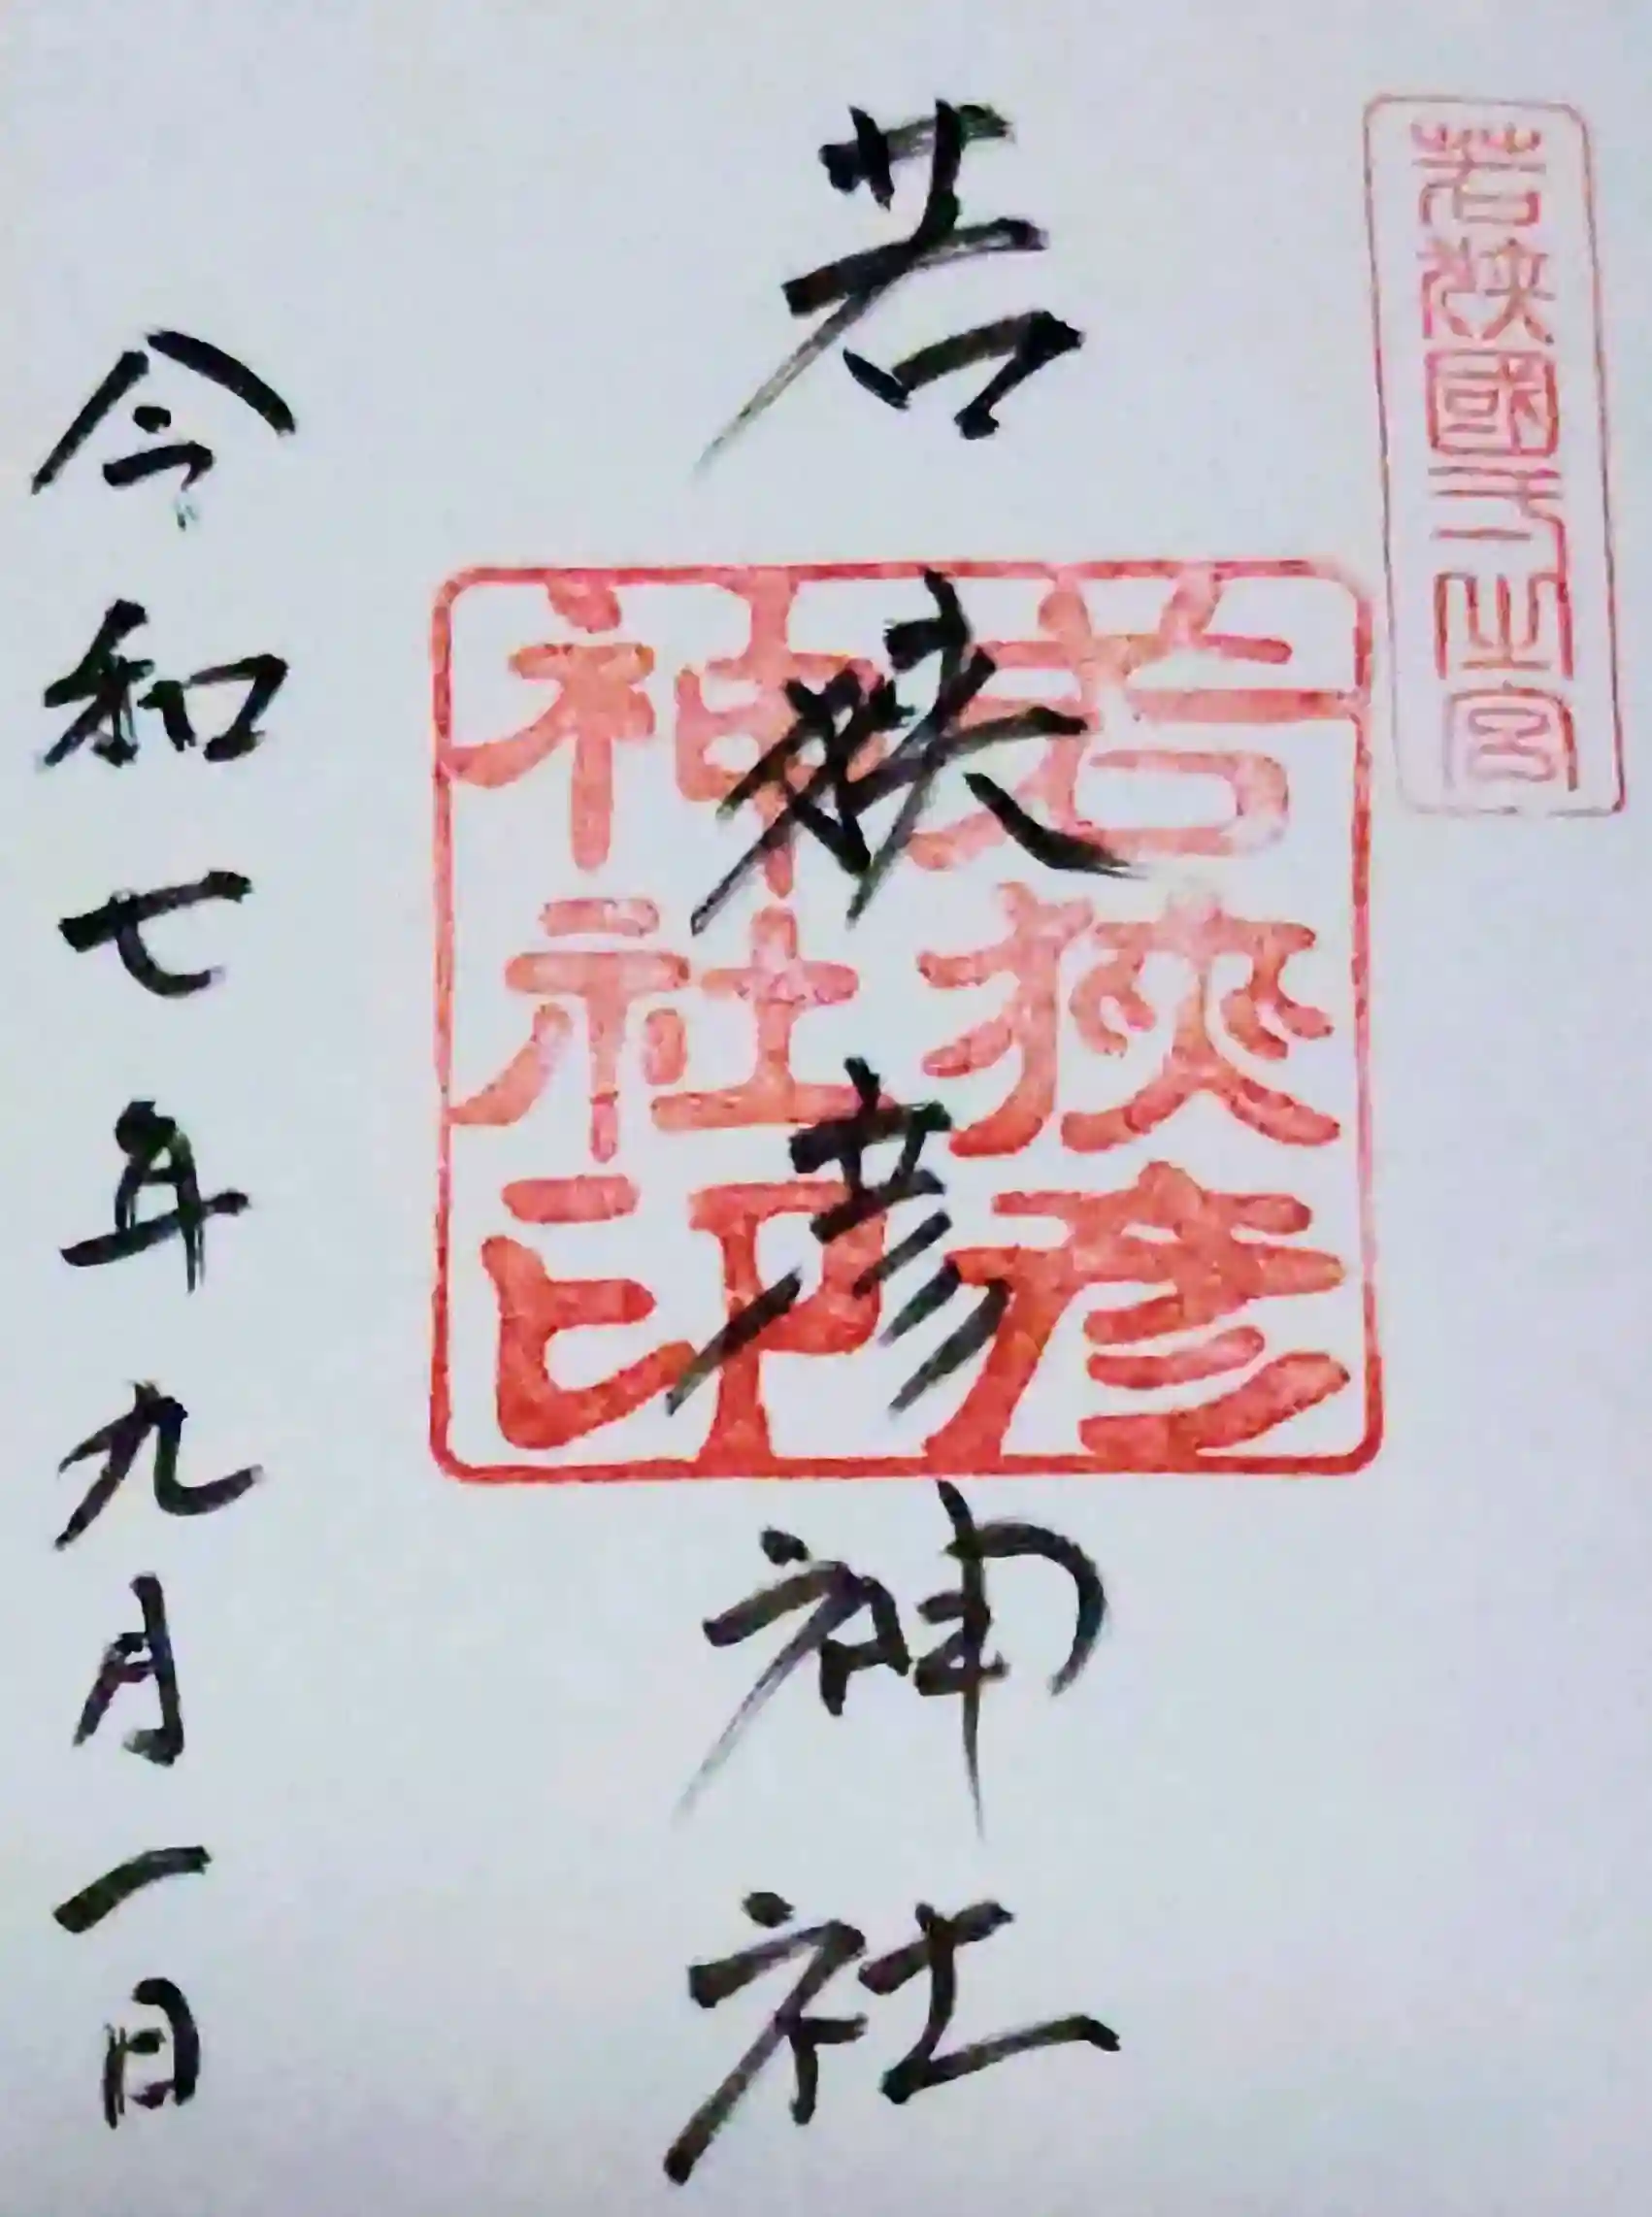 若狭國一之宮
若狭彦神社
若狭彦
神社印
令和七年九月一日